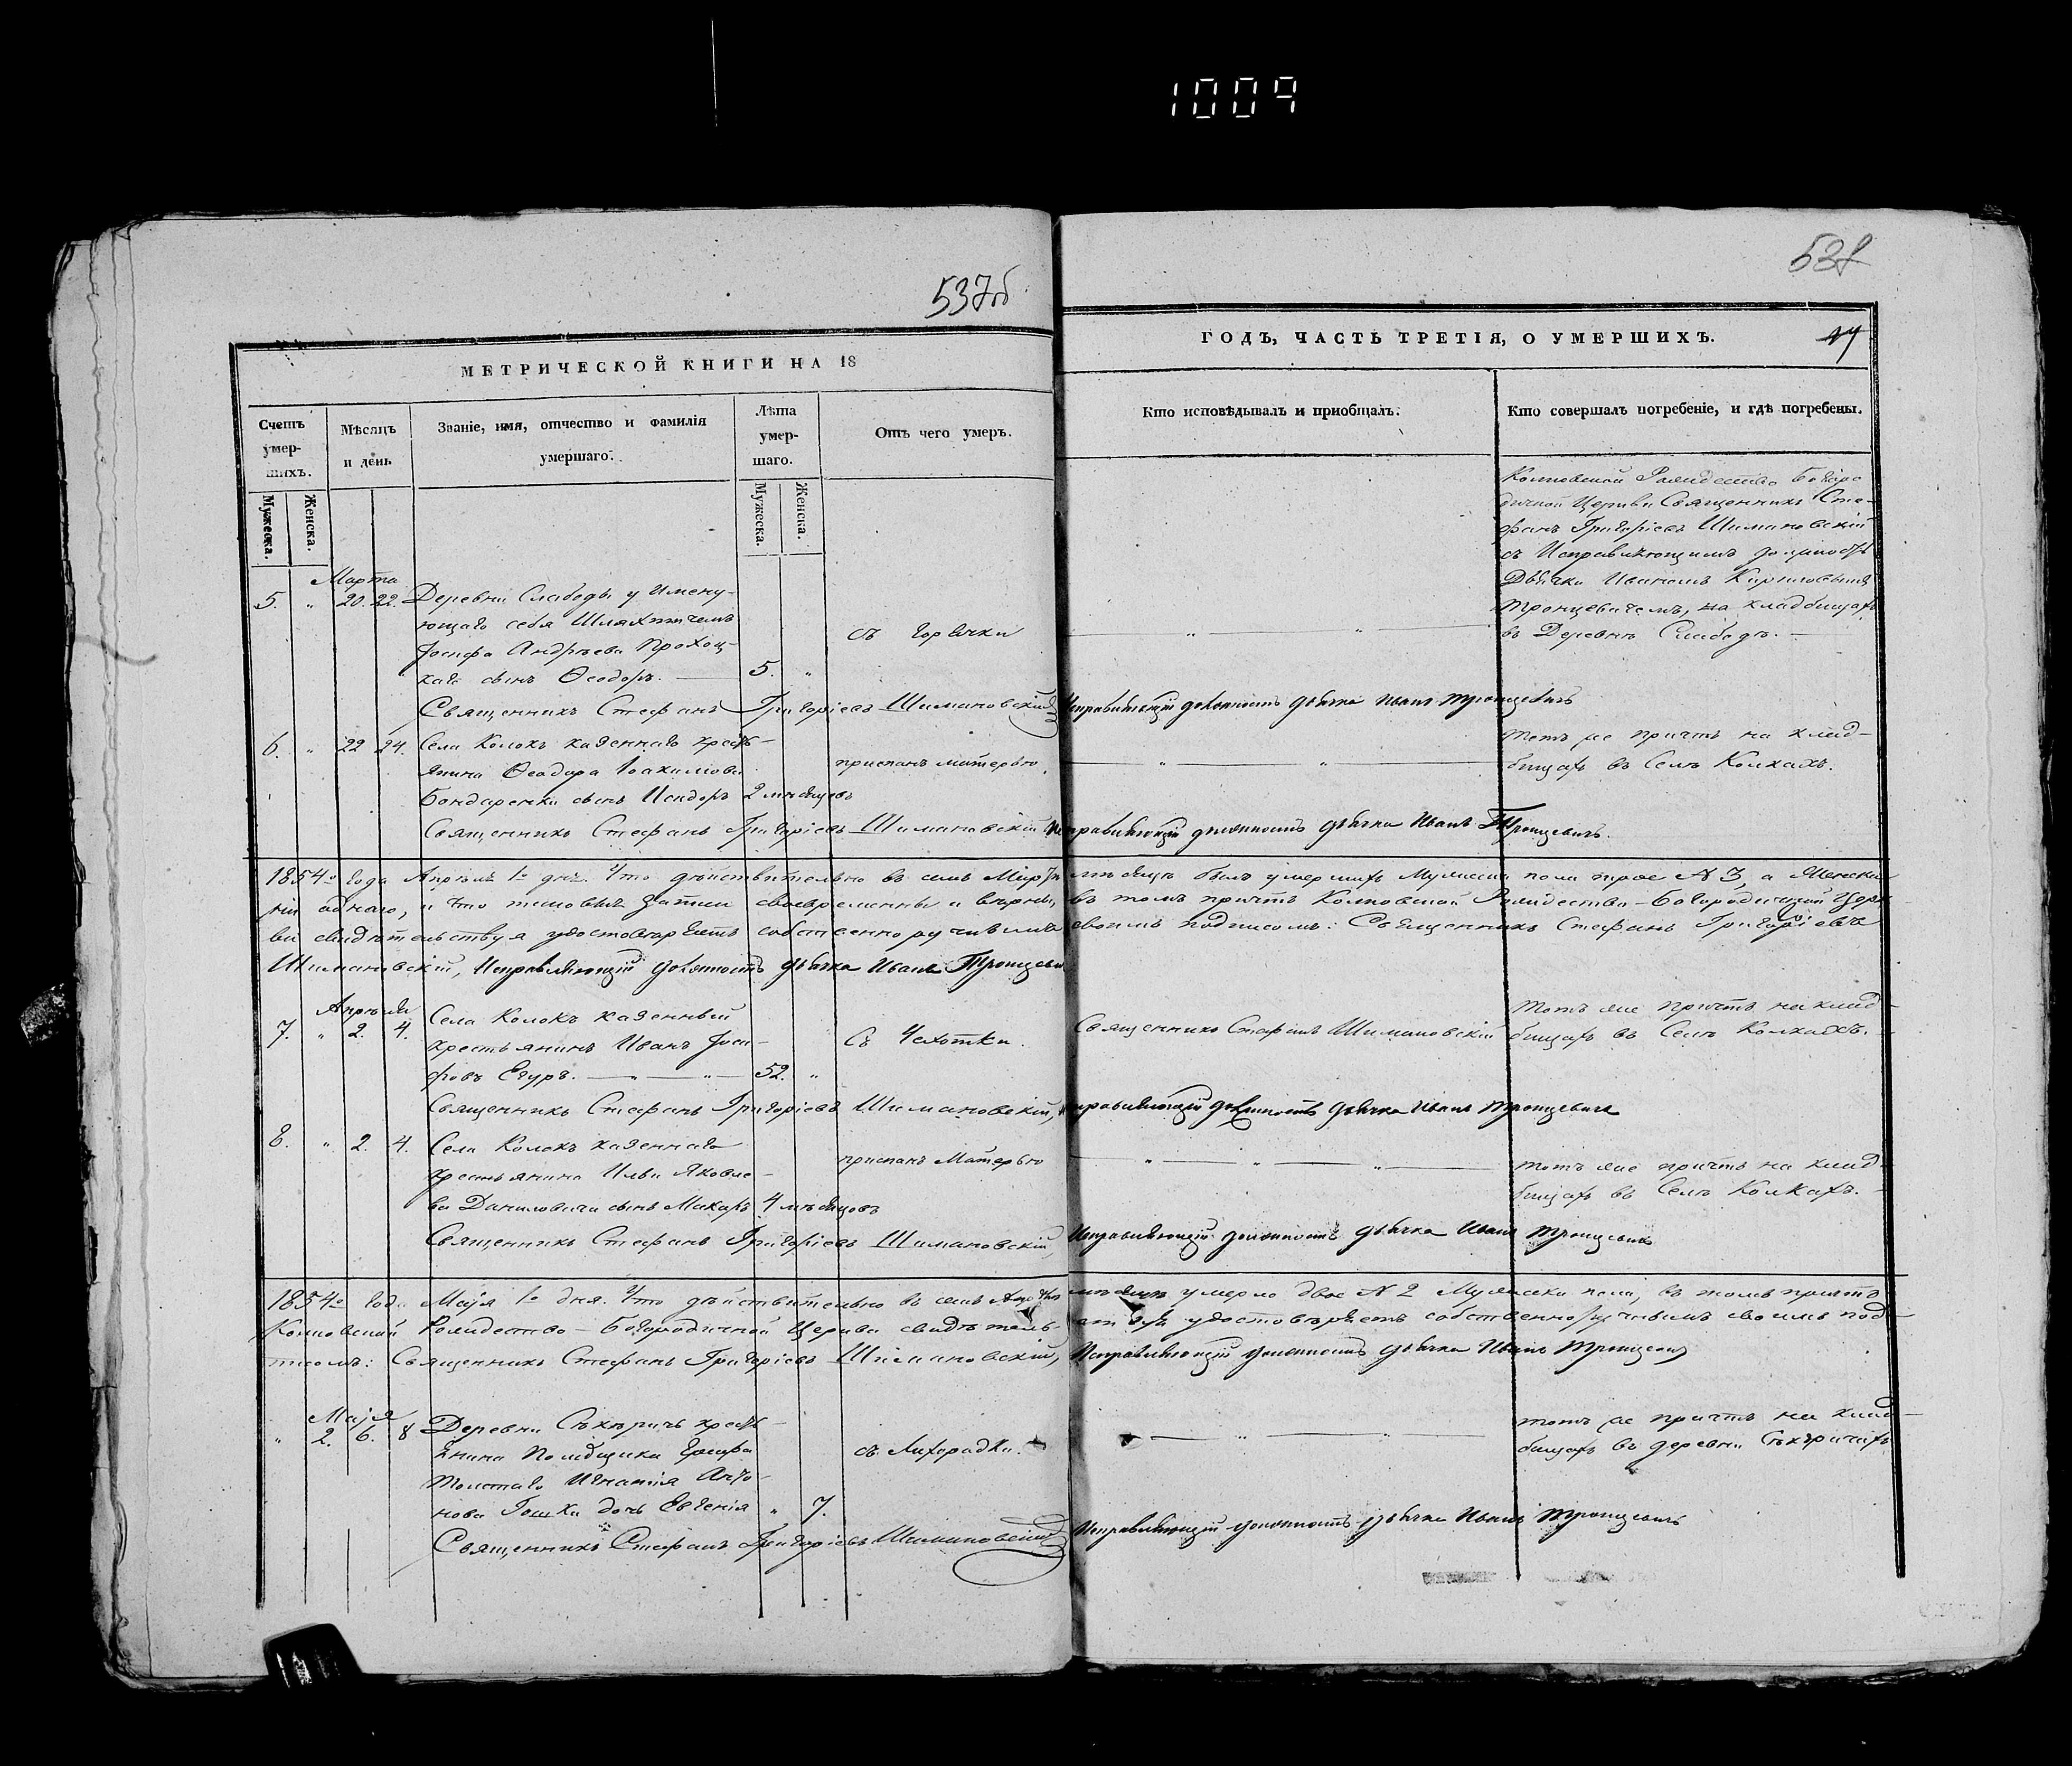 1009
537об
538
МЕТРИЧЕСКОЙ КНИГИ НА 18
ГОДЪ, ЧАСТЬ ТРЕТІЯ, О УМЕРШИХЪ.
Счетъ умер-шихъ.
Мужеска.
Женска.
Мѣсяцъ и день
Званіе, имя, отчество и фамилія умершаго.
Лѣта умер-шаго.
Мужеска.
Женска.
Отъ чего умеръ.
Кто исповѣдывалъ и приобщалъ.
Кто совершалъ погребеніе, и гдѣ погребены.
Марта
5. " 20. 22.
Деревни Слабоды у имену-
ющаго себя Шляхтичемъ
Іосифа Андрѣева Прохоц-
каго сынъ Ѳеодоръ.
5. "
съ горячки
Колковской Рождество Богоро
дичной Церкви Священникъ Сте-
фанъ Григоріевъ Шимановскій
съ Исправляющимъ должность
Дьячка Иваномъ Кириловымъ
Тронцевичемъ, на кладбищахъ
въ Деревнѣ Слабодѣ.
Священникъ Стефанъ Григоріевъ Шимановскій Исправляющій должность дьячка Иванъ Тронцевичъ
6. " 22 24.
Села Колокъ казеннаго кресть-
янина Ѳеодора Іоакимова
Бондаренки сынъ Исидоръ 2 мѣсяцовъ
приспанъ матерью
тотъ же причтъ на клад-
бищахъ въ Селѣ Колкахъ.
Священникъ Стефанъ Григоріевъ Шимановскій Исправляющій должность дьячка Иванъ Тронцевичъ.
1854го года Апрѣля 1го дня. Что дѣйствительно въ семъ Мартѣ мѣсяцѣ было умершихъ Мужеска пола трое № 3, а Женска
одного, и что таковыя записи своевременны и вѣрны, въ томъ причтъ Колковской Рождество-Богородичной Церк
ви свидѣтельствуя удостовѣряетъ собственноручнымъ своимъ подписомъ: Священникъ Стефанъ Григоріевъ
Шимановскій, Исправляющій должность дьячка Иванъ Тронцевич
Апрѣля
7. " 2. 4.
Села Колокъ казенный
крестьянинъ Иванъ Іоси-
фовъ Сгуръ.
52. "
Съ Чехотки.
Священникъ Стефанъ Шимановскій
тотъ же причтъ на клад-
бищахъ въ Селѣ Колкахъ.
Священникъ Стефанъ Григоріевъ Шимановскій, исправляющій должность дьячка Иванъ Тронцевичъ
8. " 2. 4.
Села Колокъ казеннаго
крестьянина Ильи Яковле-
ва Даниловича сынъ Макаръ 4 мѣсяцовъ
приспанъ Матерью
тотъ же причтъ на клад-
бищахъ въ Селѣ Колкахъ.
Священникъ Стефанъ Григоріевъ Шимановскій, Исправляющій должность дьячка Иванъ Тронцевичъ
1854го года Маія 1го дня. Что дѣйствительно въ семъ мѣсяцѣ умерло двое № 2 Мужеска пола, въ томъ причтъ
Колковской Рождество-Богородичной Церкви свидѣтельствуя удостовѣряетъ собственноручнымъ своимъ под-
писомъ: Священникъ Стефанъ Григоріевъ Шимановскій, Исправляющій должность дьячка Иванъ Тронцевичъ
Маія
" 2. 6. 8
Деревни Съкѣричъ кресть-
янина Помѣщика Графа
Толстаго Игнатія Анто-
нова Гошки дочь Евгенія " 7.
съ Лихорадки.
тотъ же причтъ на клад-
бищахъ въ деревни Съкѣричахъ
Священникъ Стефанъ Григоріевъ Шимановскій Исправляющій должность дьячка Иванъ Тронцевичъ